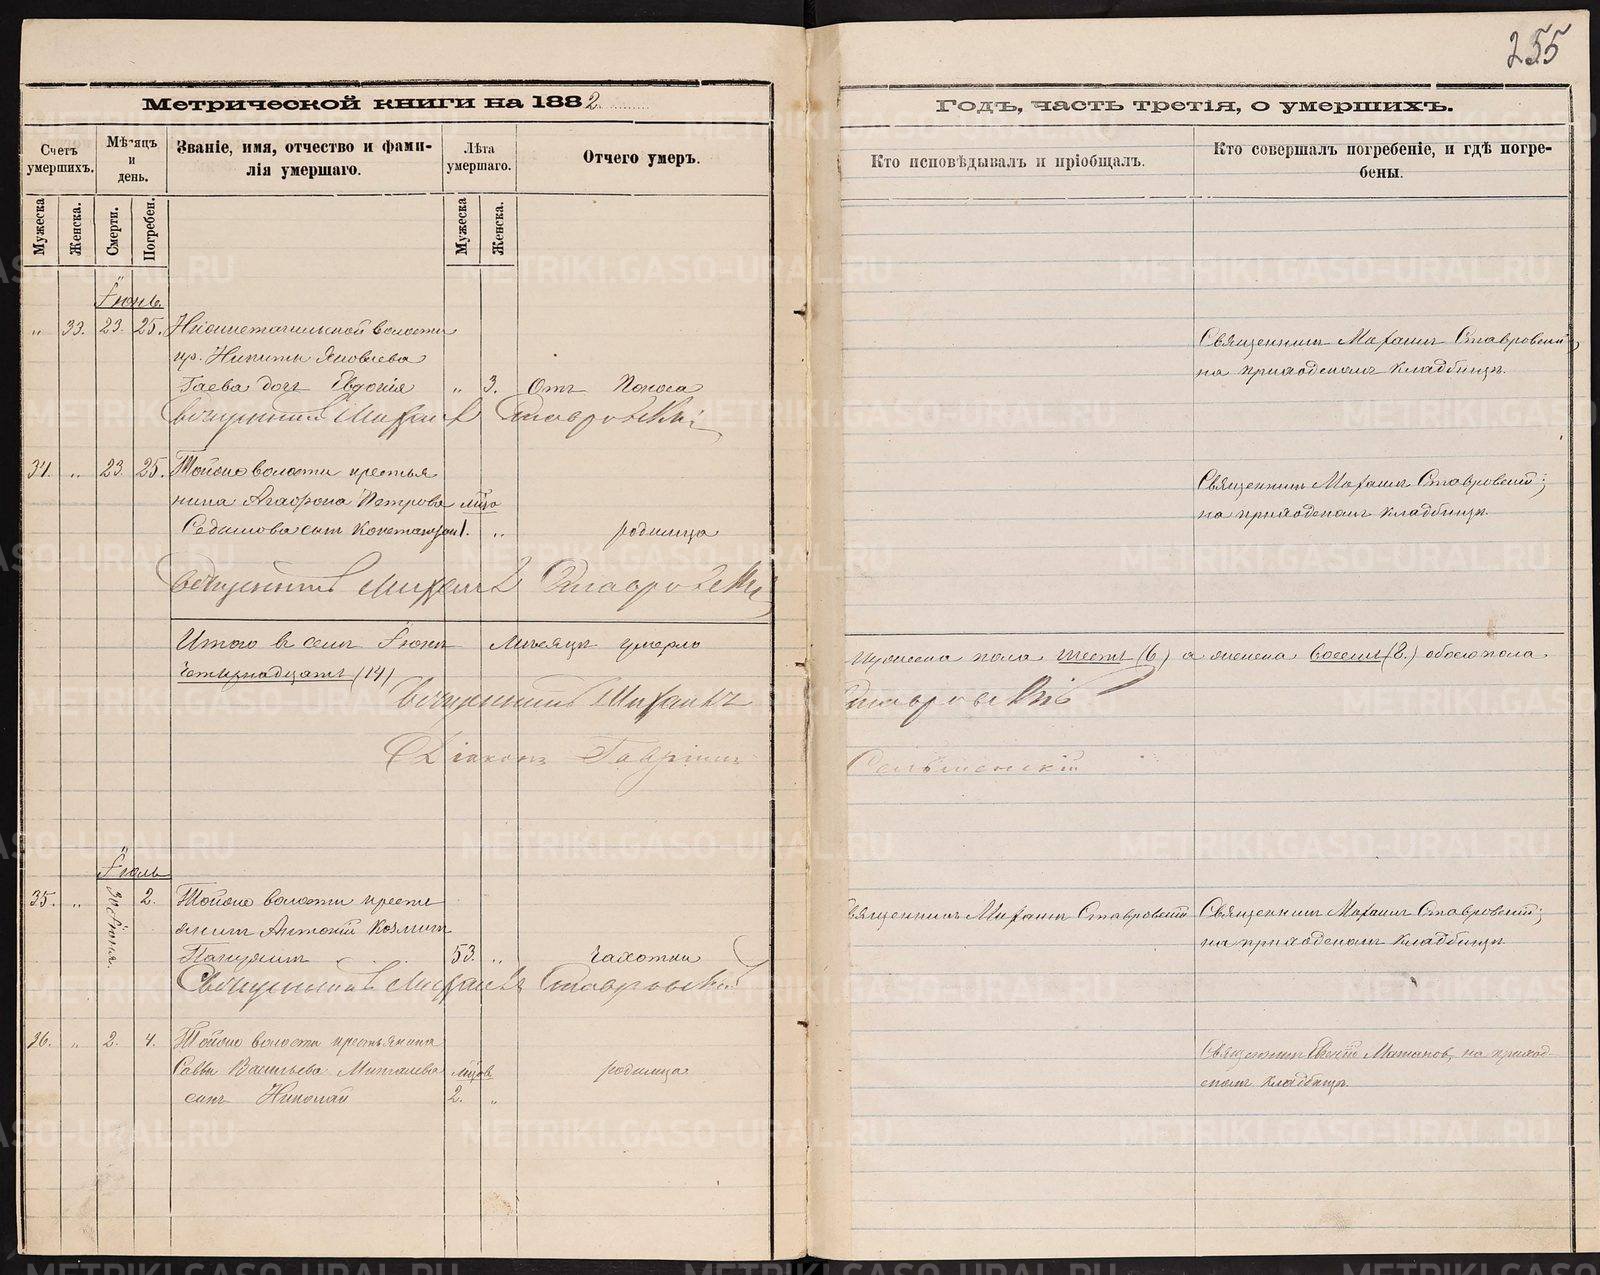 255
Метрической книги на 1882
Годъ, часть третія, о умершихъ.
Счетъ умершихъ.
Мѣсяцъ и день.
Званіе, имя, отчество и фами-
лія умершаго.
Лѣта умершаго.
Отчего умеръ.
Кто исповѣдывалъ и пріобщалъ.
Кто совершалъ погребеніе, и гдѣ погре-
бены.
Мужеска
Женска.
Смерти.
Погребен.
Мужеска
Женска.
Іюнь.
„ 33. 23. 25. волости Священникъ Михаилъ Ставровскій,
кр. Никиты Яковлева на приходскомъ кладбищѣ.
Гаева дочь Евдокія „ 3. Отъ поноса
Священникъ Михаилъ Ставровскій
34. „ 23. 25. Тойже волости крестья Священникъ Михаилъ Ставровскій;
нина Агафона Петрова мѣся на приходскомъ кладбищѣ.
сынъ Константинъ 1. „ родимца
Священникъ Михаилъ Ставровскій
Итого въ семъ Іюнѣ мѣсяцѣ умерло мужеска пола шесть (6) а женска восемь (8.) обоего пола
четырнадцать (14)
Священникъ Михаилъ Ставровскій
Діаконъ Гавріилъ
Іюль
35. „ 30 Іюня. 2. Тойже волости крестья Священникъ Михаилъ Ставровскій Священникъ Михаилъ Ставровскій;
нинъ Антоній Козминъ на приходскомъ кладбищѣ
53. „ чахотки
Священникъ Михаилъ Ставровскій
36. „ 2. 4. Тойже волости крестьянина Священникъ на приход-
Саввы Васильева мѣсяцев родимца скомъ кладбищѣ.
сынъ Николай 2. „
METRIKI.GASO-URAL.RU